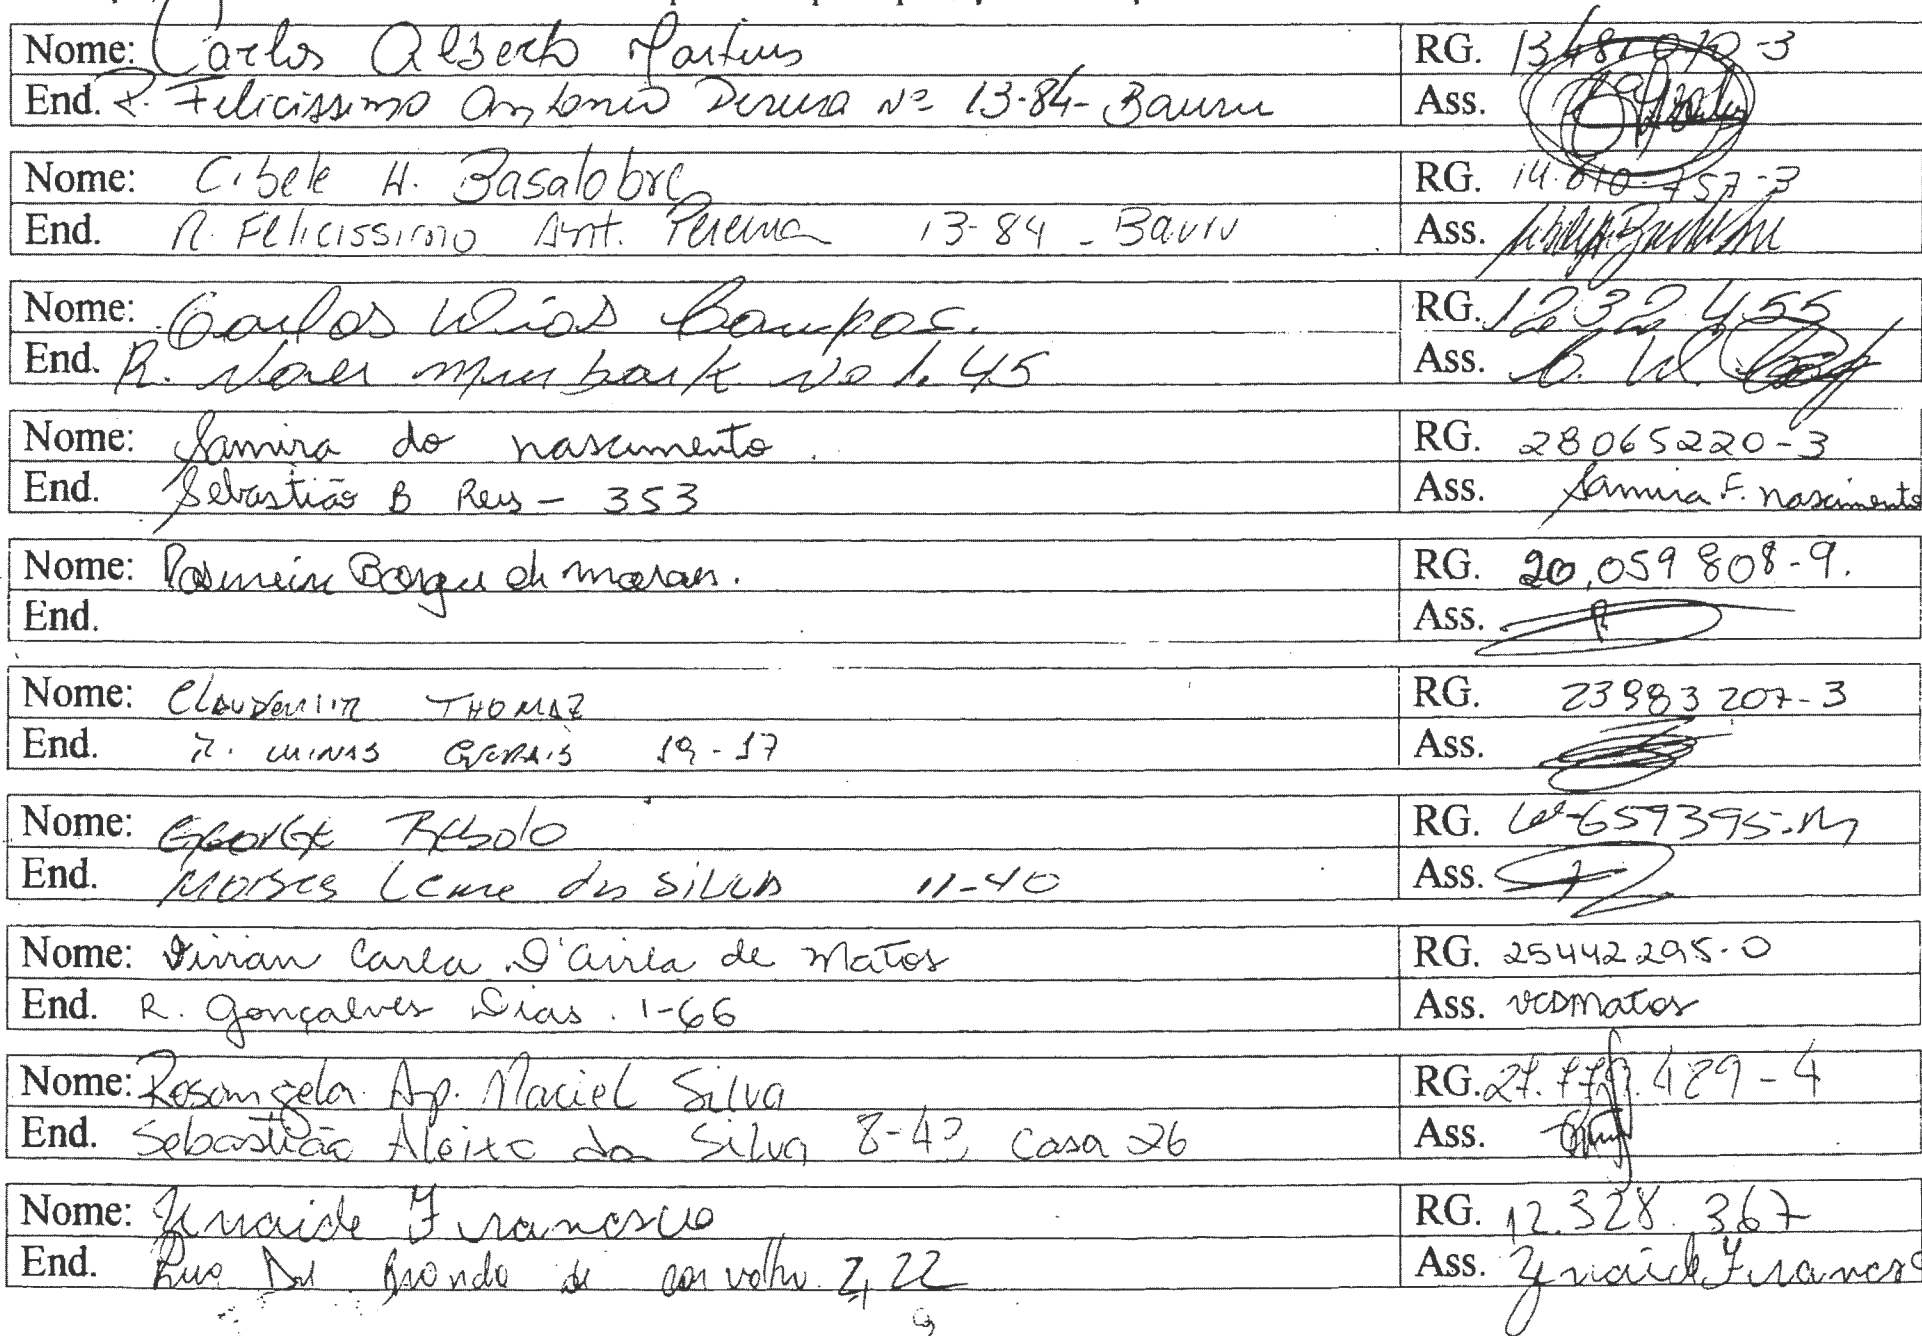 Nome: Carlos Alberto Martins RG. 13481070-3
End. R. Felicissimo Antonio Pereira nº 13-84- Bauru Ass.
Nome: Cibele H. Basalobre RG. 14.010.757-3
End. R. Felicissimo Ant. Pereira 13-84 - Bauru Ass.
Nome: Carlos Campos. RG. 1232455
End. R. No 1.45 Ass.
Nome: Samira do nascimento. RG. 28065220-3
End. Sebastião B Reis - 353 Ass. Samira F. nascimento
Nome: Rosimeire Borges de moraes. RG. 20.059 808-9.
End. Ass.
Nome: Claudemir THOMAZ RG. 23983207-3
End. R. MINAS GERAIS 19-17 Ass.
Nome: George Rebolo RG.
End. Moises Leme da Silva 11-40 Ass.
Nome: Vivian Carla D'avila de Matos RG. 25442295-0
End. R. Gonçalves Dias. 1-66 Ass. VCDMatos
Nome: Rosangela Ap. Maciel Silva RG.
End. Sebastião Aleixo da Silva Casa 26 Ass.
Nome: Zenaide Francisco RG. 12.328.367
End. Rua de Carvalho 2,22 Ass. Zenaide Francisco